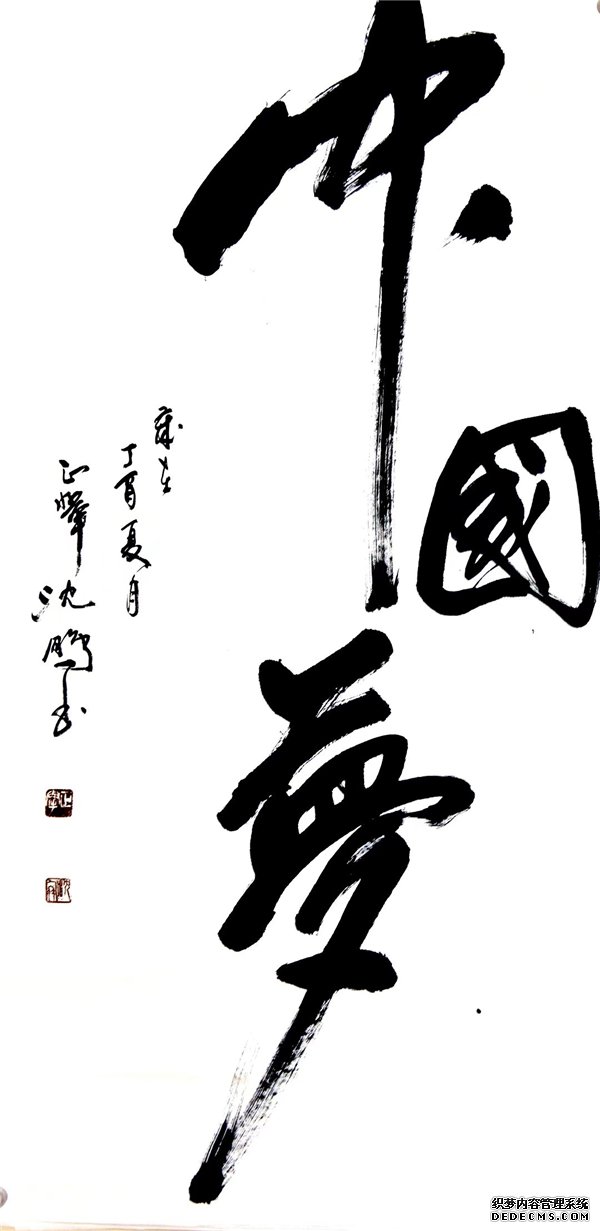 中國夢
歲在
丁酉夏月
沈鹏书
织梦内容管理系统
DEDECMS.COM